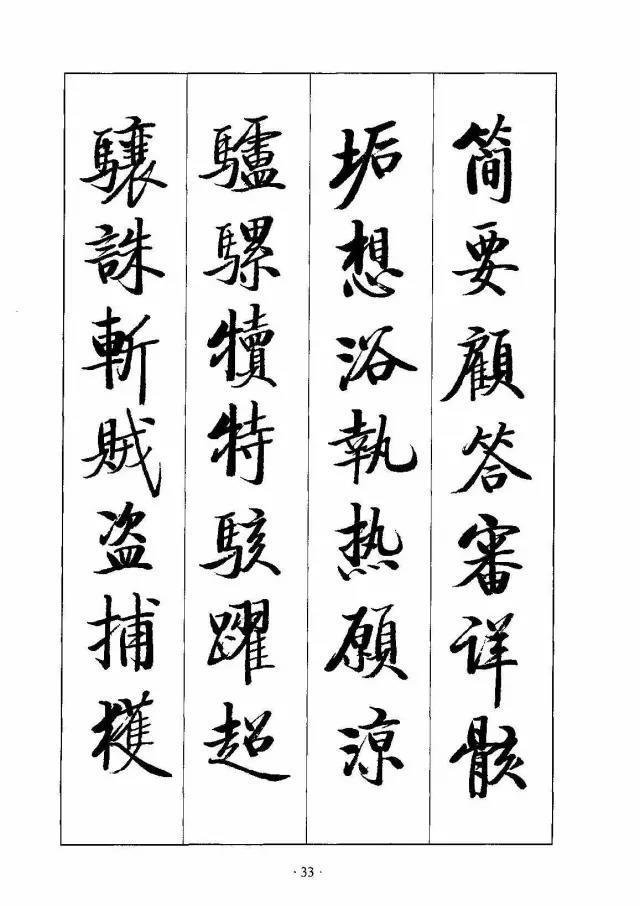 简要顧答審详骸
垢想浴執热願涼
驢騾犢特駭躍超
驤誅斬贼盗捕獲
·33·